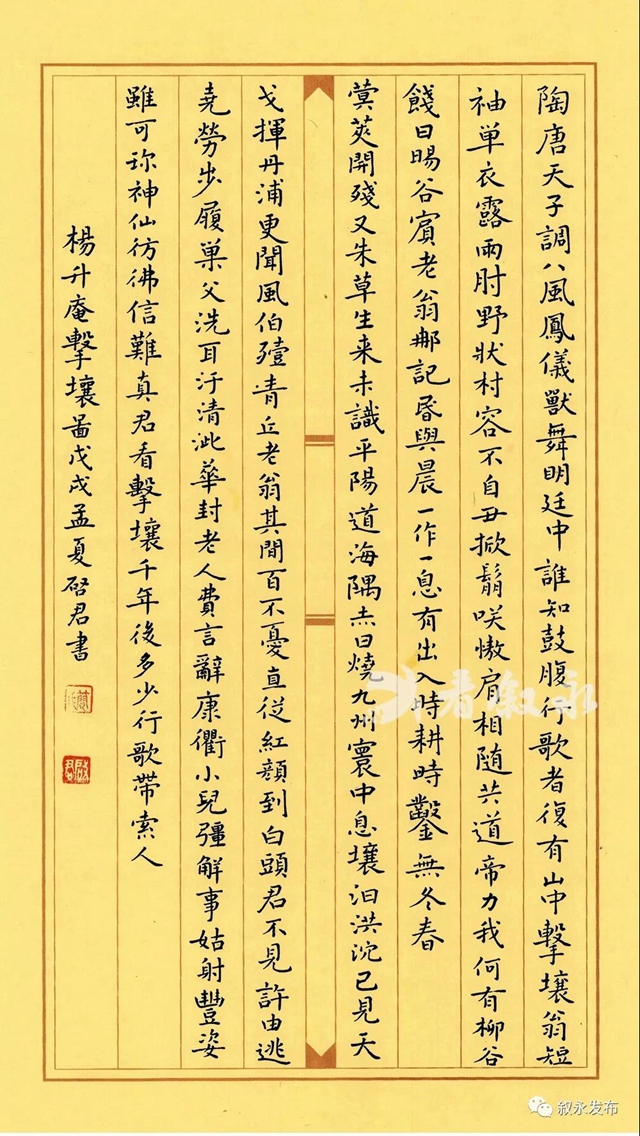 陶唐天子調八風鳳儀獸舞明廷中誰知鼓腹行歌者復有山中擊壤翁短
袖单衣露兩肘野狀村容不自丑掀髯咲傲肩相随共道帝力我何有柳谷
餞日暘谷賓老翁那記昏與晨一作一息有出入時耕時鑿無冬春
蓂莢開殘又朱草生来未識平陽道海隅赤日燒九州寰中息壤汩洪沇已見天
戈揮丹浦更聞風伯殪青丘老翁其間百不憂直從紅顔到白頭君不見許由逃
堯勞步履巢父洗耳汙清泚華封老人費言辭康衢小兒彊解事姑射豐姿
雖可珎神仙彷彿信難真君看擊壤千年後多少行歌帶索人
楊升庵擊壤啚戊戌孟夏啓君書
看叙永
叙永发布